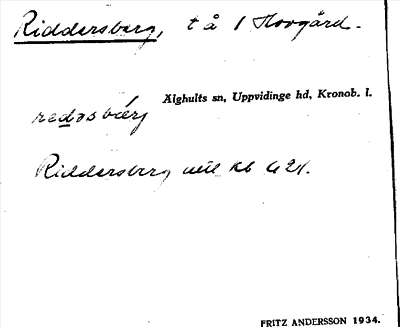 Riddersberg, t å 1 Hovgård.
Älghults sn, Uppvidinge hd, Kronob. l.
redǝsbærj
Riddersberg utit kb 42/.
FRITZ ANDERSSON 1934.